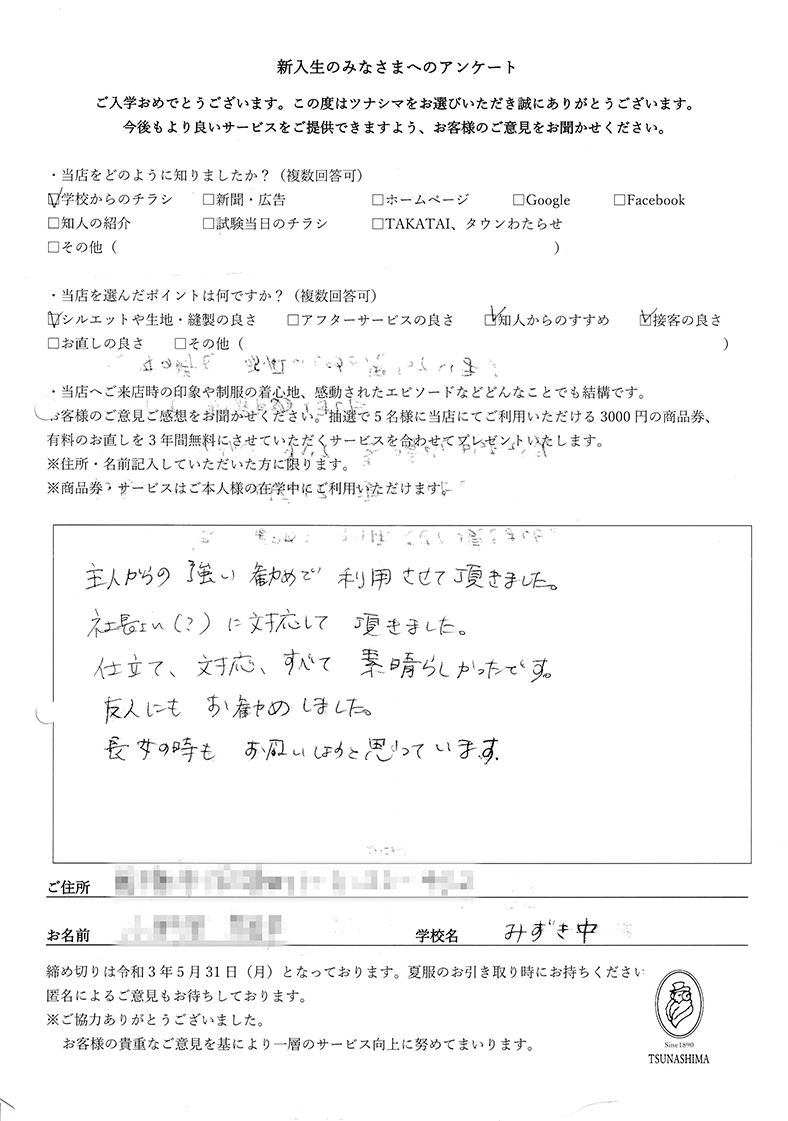 新入生のみなさまへのアンケート
ご入学おめでとうございます。この度はツナシマをお選びいただき誠にありがとうございます。
今後もより良いサービスをご提供できますよう、お客様のご意見をお聞かせください。
・当店をどのように知りましたか？（複数回答可）
☑学校からのチラシ □新聞・広告 □ホームページ □Google □Facebook
□知人の紹介 □試験当日のチラシ □TAKATAI、タウンわたらせ
□その他（ ）
・当店を選んだポイントは何ですか？（複数回答可）
☑シルエットや生地・縫製の良さ □アフターサービスの良さ ☑知人からのすすめ ☑接客の良さ
□お直しの良さ □その他（ ）
・当店へご来店時の印象や制服の着心地、感動されたエピソードなどどんなことでも結構です。
お客様のご意見ご感想をお聞かせください。抽選で5名様に当店にてご利用いただける3000円の商品券、
有料のお直しを3年間無料にさせていただくサービスを合わせてプレゼントいたします。
※住所・名前記入していただいた方に限ります。
※商品券・サービスはご本人様の在学中にご利用いただけます。
主人からの強い勧めで利用させて頂きました。
社長さん（？）に対応して頂きました。
仕立て、対応、すべて素晴らしかったです。
友人にもお勧めしました。
長女の時もお願いしようと思っています。
ご住所
お名前 学校名 みずき中
締め切りは令和3年5月31日（月）となっております。夏服のお引き取り時にお持ちください
匿名によるご意見もお待ちしております。
※ご協力ありがとうございました。
お客様の貴重なご意見を基により一層のサービス向上に努めてまいります。
Sine1890
TSUNASHIMA